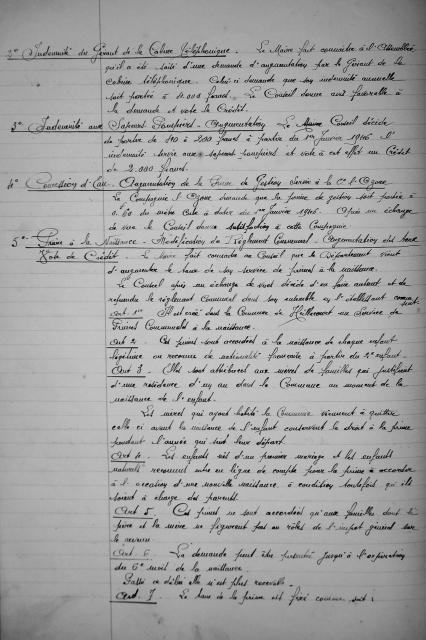 2° Indemnité du Gérant de la Cabine téléphonique. Le Maire fait connaître à l'Assemblée
qu'il a été saisi d'une demande d'augmentation par le Gérant de la
cabine téléphonique. Celui-ci demande que son indemnité annuelle
soit portée à 4.000 francs. Le Conseil donne avis favorable à
la demande et vote le Crédit.
3° Indemnité aux Sapeurs-Pompiers - Augmentation. Le Conseil décide
de porter de à 200 francs à partir du 1er Janvier 1946 l'
indemnité servie aux sapeurs pompiers et vote à cet effet un Crédit
de 2.000 francs.
4° Concession d'Eau. Augmentation de la Prime de Gestion Servie à la Cie l'Ozone
La Compagnie l'Ozone demande que la prime de gestion soit portée à
0.60 du mètre cube à dater du 1er Janvier 1946. Après un échange
de vues le Conseil donne satisfaction à cette Compagnie.
5° Prime à la Naissance - Modification du Règlement Communal - Augmentation des taux
Vote de Crédit. Le Maire fait connaître au Conseil que le Département vient
d'augmenter le taux de son service de primes à la naissance.
Le Conseil après un échange de vues décide d'en faire autant et de
refondre le règlement Communal dans son entier en l'établissant comme
suit:
Art. 1er Il est créé dans la Commune de un Service de
Primes Communales à la naissance.
Art 2. Ces primes sont accordées à la naissance de chaque enfant
légitime ou reconnu de nationalité française à partir du 2e enfant.
Art 3. Elles sont attribuées aux mères de familles qui justifient
d'une résidence d'un an dans la Commune au moment de la
naissance de l'enfant.
Les mères qui ayant habité la Commune viennent à quitter
celle ci avant la naissance de l'enfant conservent le droit à la prime
pendant l'année qui suit leur départ.
Art 4. Les enfants nés d'un premier mariage et les enfants
naturels reconnus entre en ligne de compte pour la prime à accorder
à l'occasion d'une nouvelle naissance à condition toutefois qu'ils
soient à charge des parents.
Art 5. Ces primes ne sont accordées qu'aux familles dont le
père et la mère ne figurent pas au rôle de l'impôt général sur
le revenu.
Art 6. La demande peut être présentée jusqu'à l'expiration
du 6e mois de la naissance.
Passé ce délai elle n'est plus recevable.
Art. 7. Le taux de la prime est fixé comme suit: